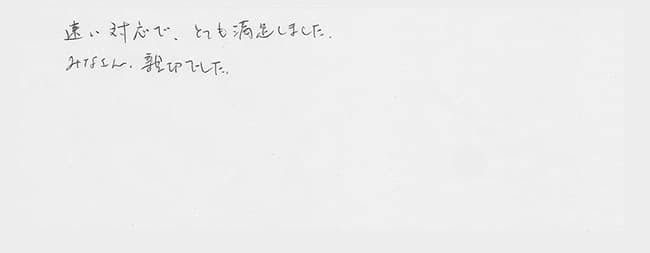 速い対応で、とても満足しました。
みなさん、親切でした。